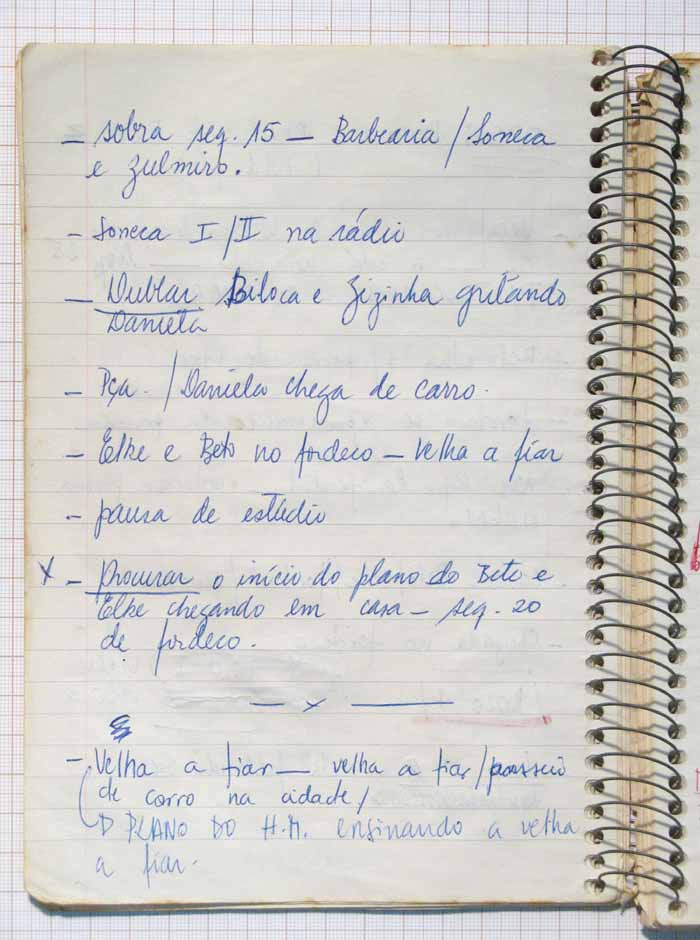 – sobra seq. 15 – Barbearia / Soneca
e Zulmiro.
– Soneca I / II na rádio
– Dublar Biloca e Zizinha gritando
Daniela
– Pça. / Daniela chega de carro.
– Elke e Beto no fordeco – Velha a fiar
– pausa de estúdio
x – Procurar o início do plano do Beto e
Elke chegando em casa – seq. 20
de fordeco.
— x —
– Velha a fiar – velha a fiar / passeio
de carro na cidade /
PLANO DO H.M. ensinando a velha
a fiar.